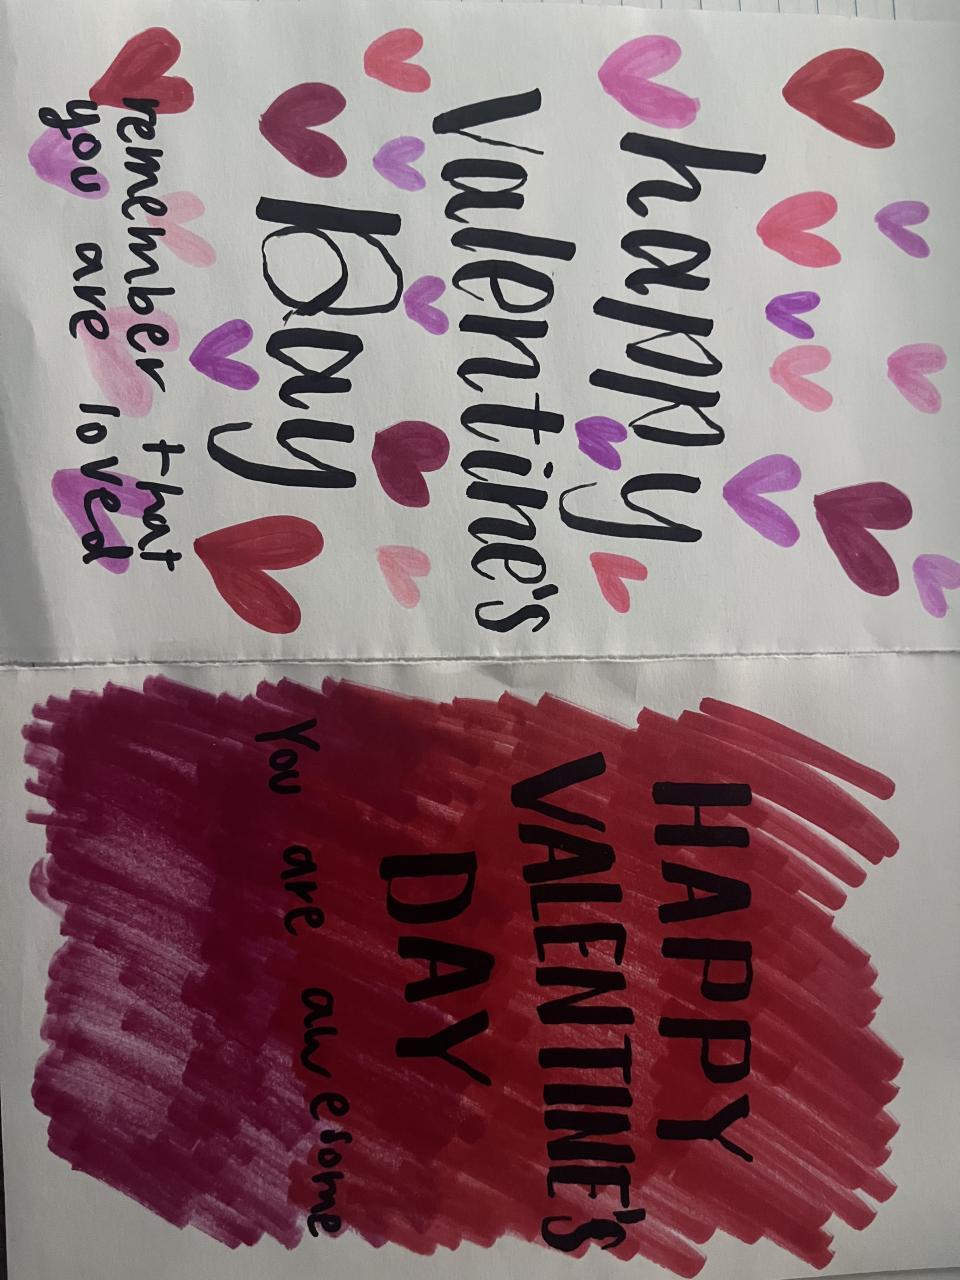 happy
valentine's
Day
remember that
you are loved
HAPPY
VALENTINE'S
DAY
You are awesome